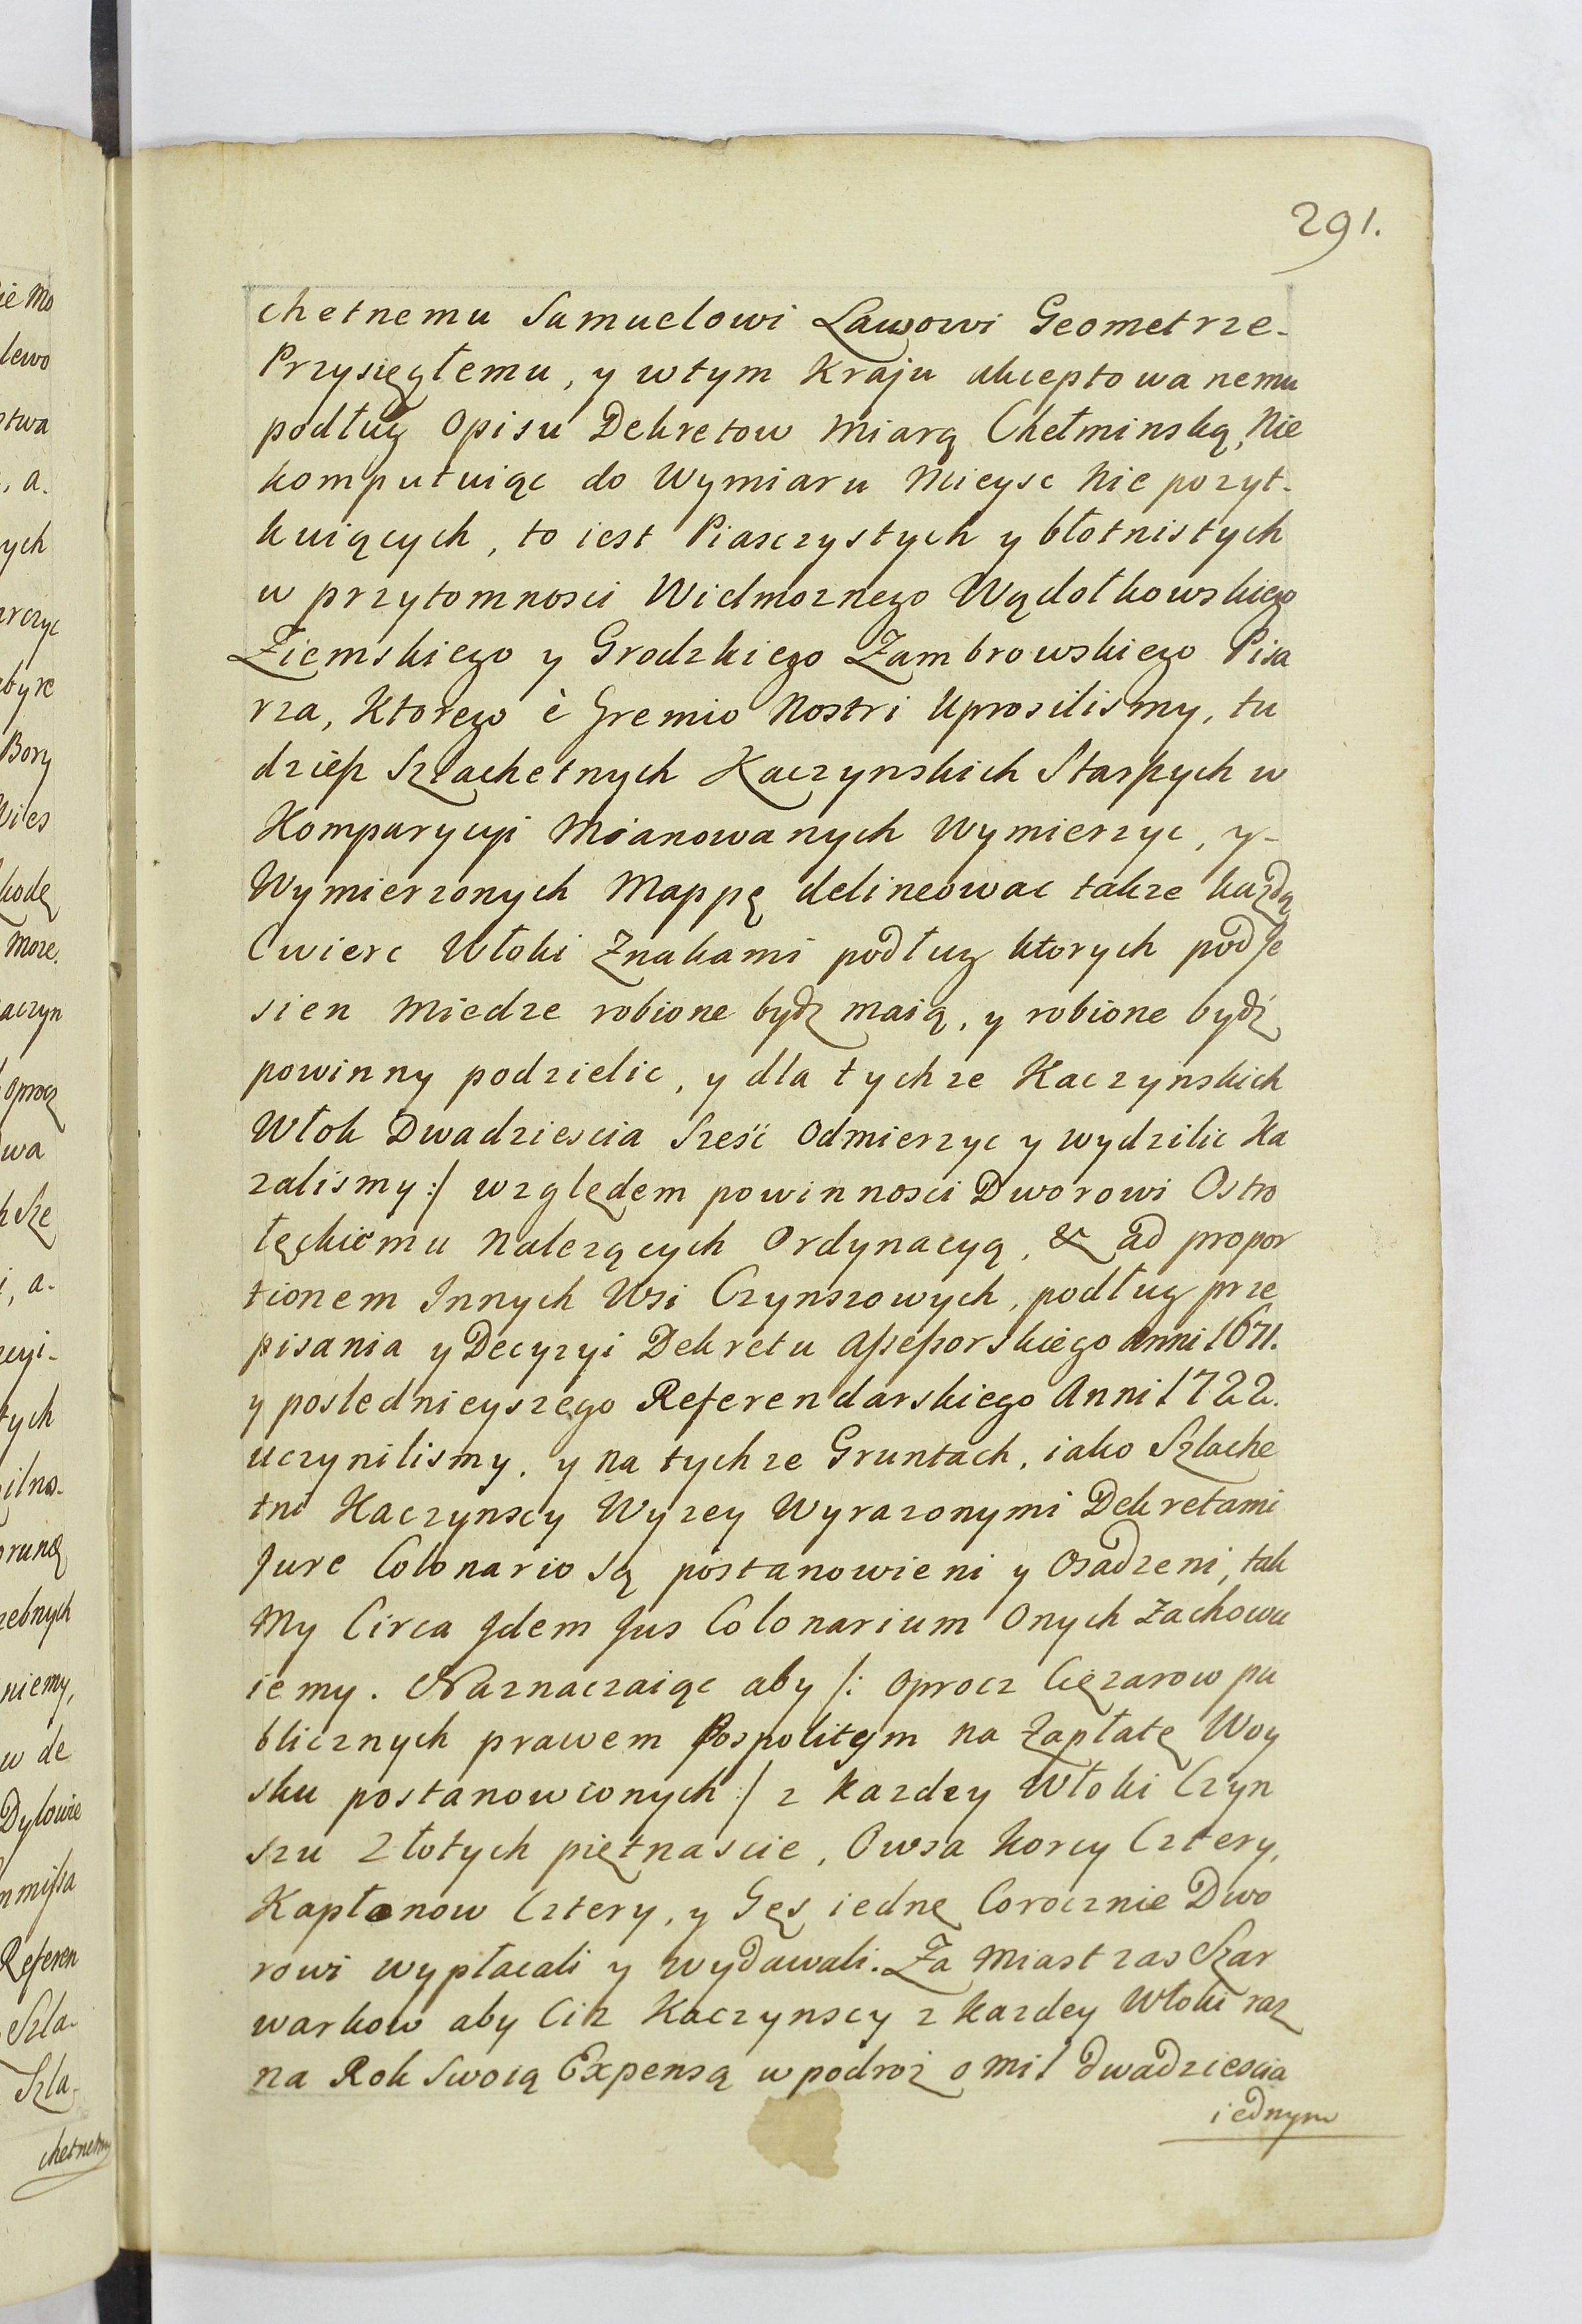 291.
chetnemu Samuelowi Lawowi Geometrze-
Przysięgłemu, y wtym Kraju akceptowanemu
podług Opisu Dekretow Miarą Chełminską, Nie
komputuiąc do Wymiaru Mieysc Nie pozyt-
kuiących, to iest Piasczystych y błotnistych
w przytomnosci Wielmoznego Wądołkowskiego
Ziemskiego y Grodzkiego Zambrowskiego Pisa
rza, Ktorego è Gremio Nostri Uprosilismy, tu
dziesz Szlachetnych Kaczynskich Starszych w
Komparycyi Mianowanych Wymierzyc, y-
Wymierzonych Mappę delineowac takze kazdą
Cwierc Włoki Znakami podług ktorych pod Je
sien Miedze robione bydz maią, y robione bydź
powinny podzielic, y dla tychze Kaczynskich
Włok Dwadziescia Sześć Odmierzyc y wydzilic Ka
zalismy:/ względem powinnosci Dworowi Ostro
łęckiemu Nalezących Ordynacyą, & ad propor
tionem Innych Wsi Czynszowych, podług prze
pisania y Decyzyi Dekretu Assessorskiego Anni 1671.
y poslednieyszego Referendarskiego Anni 1722.
uczynilismy, y na tychze Gruntach, iako Szlache
tni Kaczynscy Wyzey Wyrazonymi Dekretami
Jure Colonario są postanowieni y Osadzeni, tak
My Circa Idem Jus Colonarium Onych Zachowu
iemy. Naznaczaiąc aby /: Oprocz Cięzarow pu
blicznych prawem Pospolitym na Zapłatę Woy
sku postanowionych :/ z kazdey Włoki Czyn
szu Złotych piętnascie, Owsa Korcy Cztery,
Kapłonow Cztery, y Gęs iednę Corocznie Dwo
rowi wypłacali y wydawali. Za Miast zas Szar
warkow aby Ciz Kaczynscy z kazdey Włoki raz
na Rok Swoią Expensą w podroż o mil dwadziescia
iednym